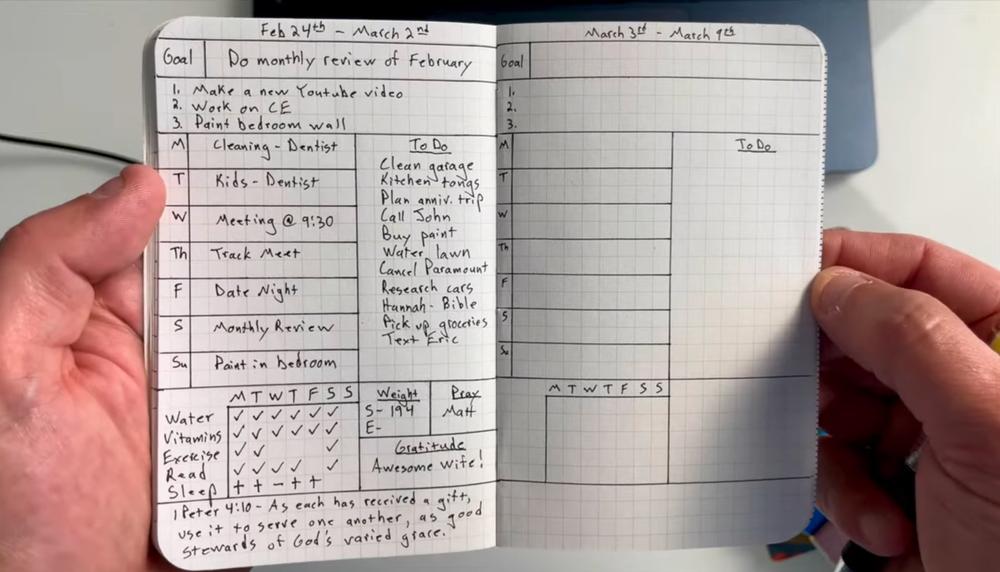 Feb 24th - March 2nd
Goal Do monthly review of February
1. Make a new Youtube video
2. Work on CE
3. Paint bedroom wall
M Cleaning - Dentist
T Kids - Dentist
W Meeting @ 9:30
Th Track Meet
F Date Night
S Monthly Review
Su Paint in bedroom
To Do
Clean garage
Kitchen tongs
Plan anniv. trip
Call John
Buy paint
Water lawn
Cancel Paramount
Research cars
Hannah - Bible
Pick up groceries
Text Eric
M T W T F S S
Water ✓ ✓ ✓ ✓ ✓ ✓
Vitamins ✓ ✓ ✓ ✓ ✓ ✓
Exercise ✓ ✓ ✓
Read ✓ ✓ ✓ ✓ ✓
Sleep + + - + +
Weight
S- 194
E-
Pray
Matt
Gratitude
Awesome Wife!
1 Peter 4:10 - As each has received a gift,
use it to serve one another, as good
stewards of God's varied grace.
March 3rd - March 9th
Goal
1.
2.
3.
M
T
W
Th
F
S
Su
To Do
M T W T F S S